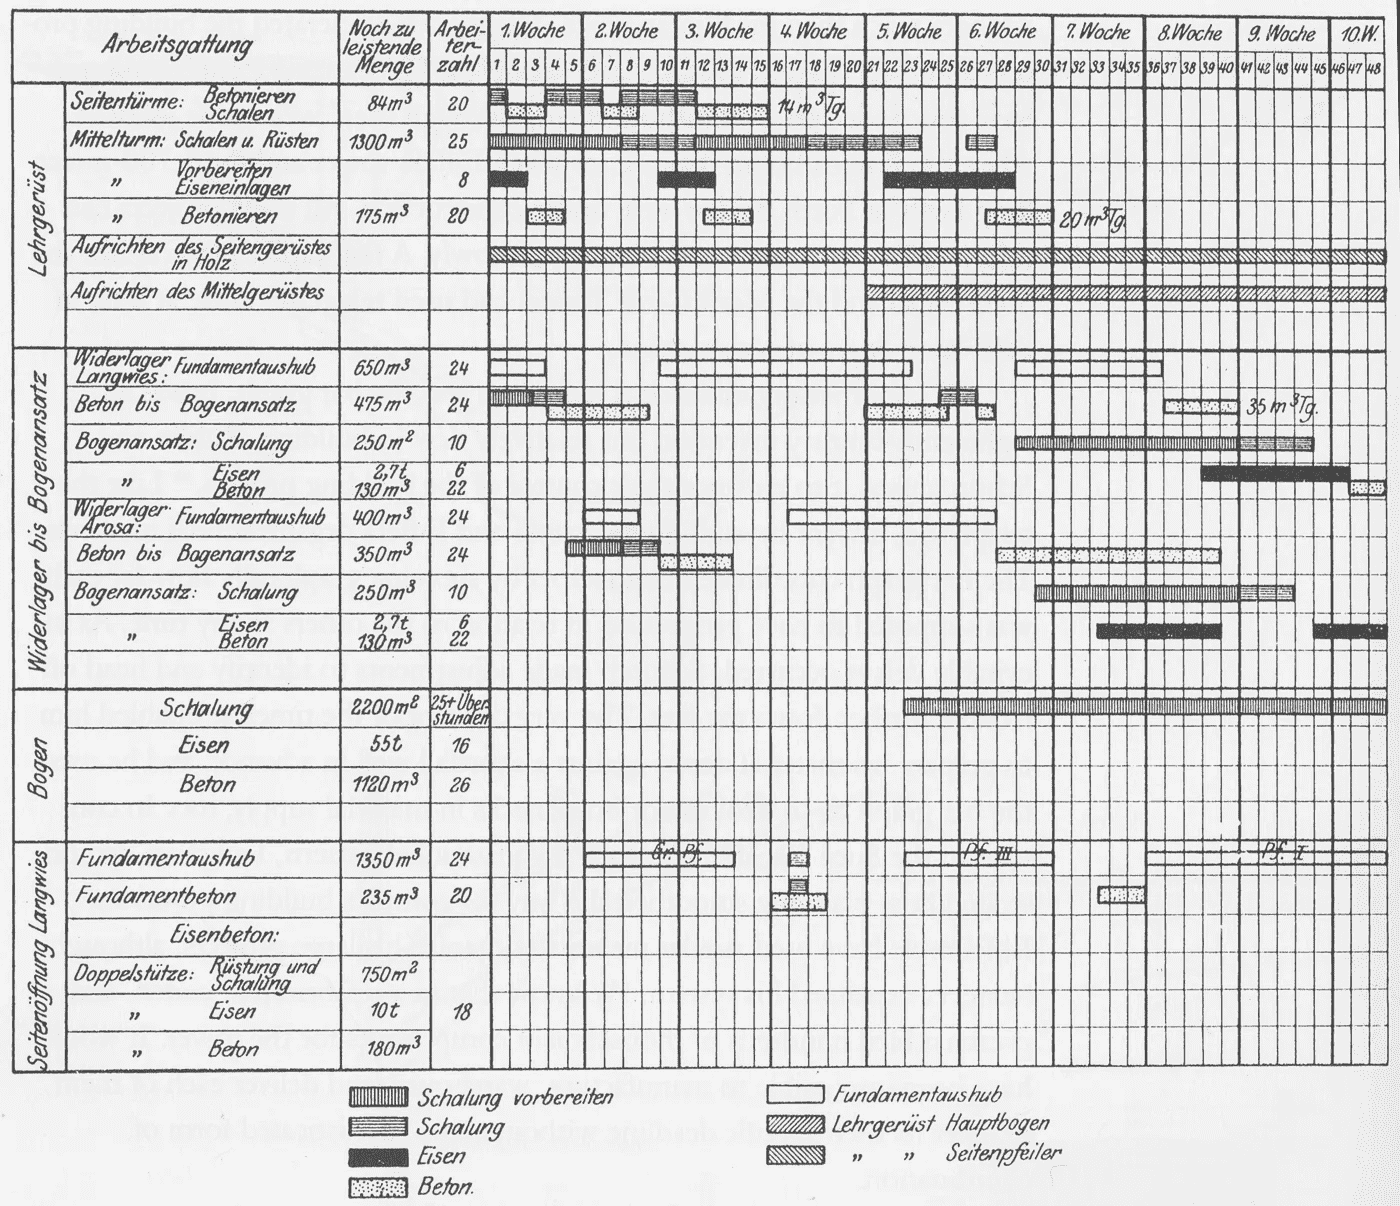 Arbeitsgattung
Noch zu leistende Menge
Arbei-ter-zahl
1.Woche 2.Woche 3.Woche 4.Woche 5.Woche 6.Woche 7.Woche 8.Woche 9.Woche 10.W.
1 2 3 4 5 6 7 8 9 10 11 12 13 14 15 16 17 18 19 20 21 22 23 24 25 26 27 28 29 30 31 32 33 34 35 36 37 38 39 40 41 42 43 44 45 46 47 48
Lehrgerüst
Seitentürme: Betonieren
Schalen 84m³ 20 14m³Tg.
Mittelturm: Schalen u. Rüsten 1300m³ 25
„ Vorbereiten
Eiseneinlagen 8
„ Betonieren 175m³ 20 20m³Tg.
Aufrichten des Seitengerüstes
in Holz
Aufrichten des Mittelgerüstes
Widerlager bis Bogenansatz
Widerlager
Langwies: Fundamentaushub 650m³ 24
Beton bis Bogenansatz 475m³ 24 35m³Tg.
Bogenansatz: Schalung 250m² 10
„ Eisen 2,7t 6
Beton 130m³ 22
Widerlager
Arosa: Fundamentaushub 400m³ 24
Beton bis Bogenansatz 350m³ 24
Bogenansatz: Schalung 250m³ 10
„ Eisen 2,7t 6
Beton 130m³ 22
Bogen
Schalung 2200m² 25+Über-
stunden
Eisen 55t 16
Beton 1120m³ 26
Seitenöffnung Langwies
Fundamentaushub 1350m³ 24 Gr. Pf. Pf. III Pf. I
Fundamentbeton 235m³ 20
Eisenbeton:
Doppelstütze: Rüstung und
Schalung 750m²
„ Eisen 10t 18
„ Beton 180m³
Schalung vorbereiten
Schalung
Eisen
Beton.
Fundamentaushub
Lehrgerüst Hauptbogen
„ „ Seitenpfeiler